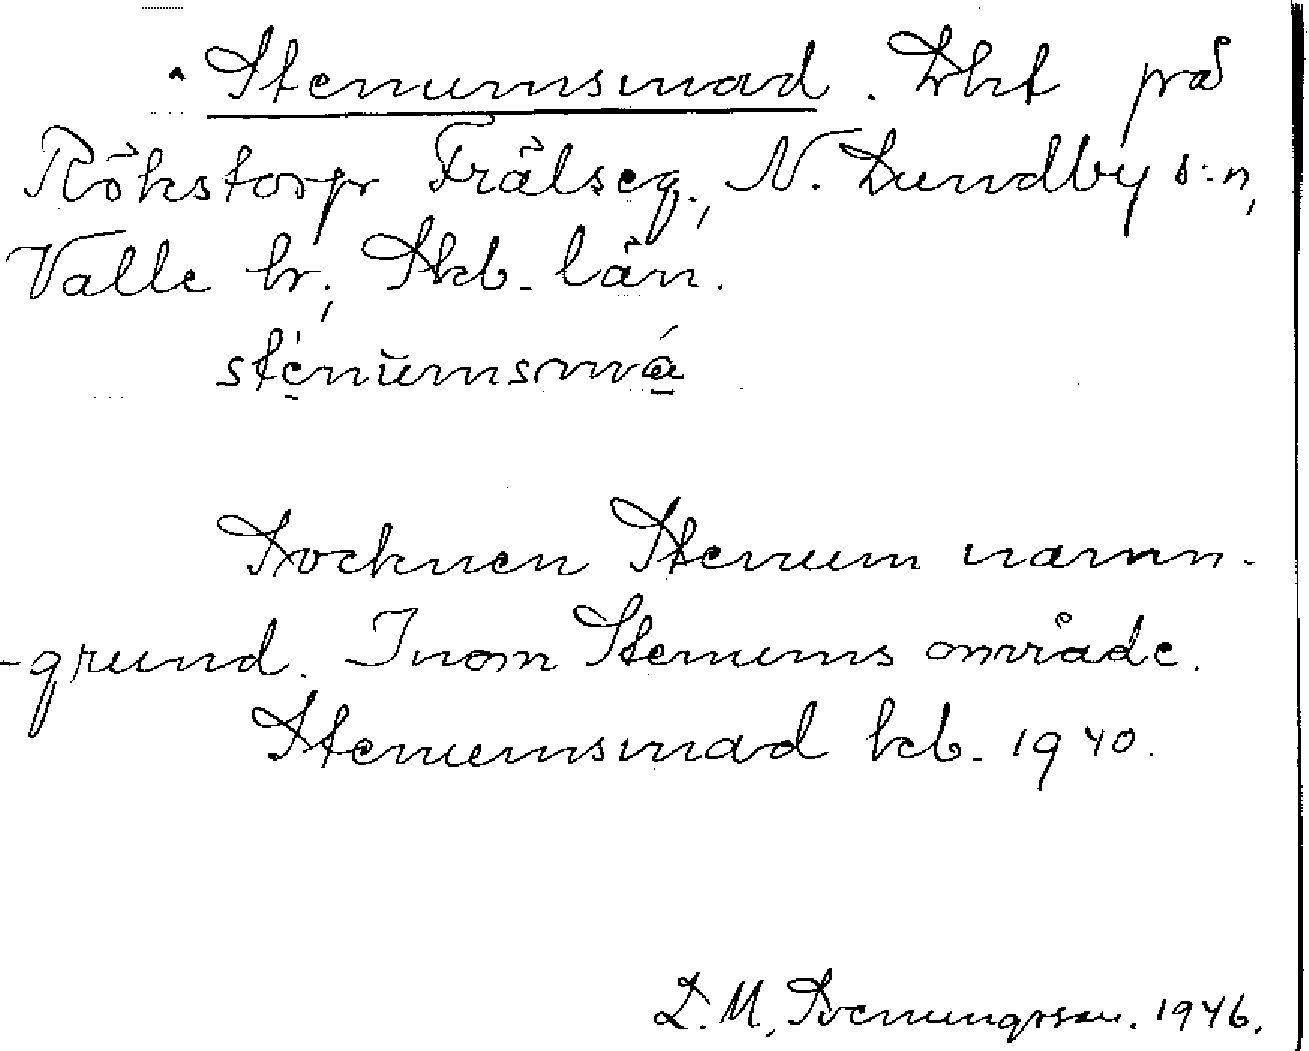 Stenumsmad. Lht på
Rökstorp Frälseg., N. Lundby s:n,
Valle hr; Skb. län.
stenumsmá
Socknen Stenum namn-
-grund. Inom Stenums område.
Stenumsmad kb. 1940.
D. M. Svenungsson. 1946.